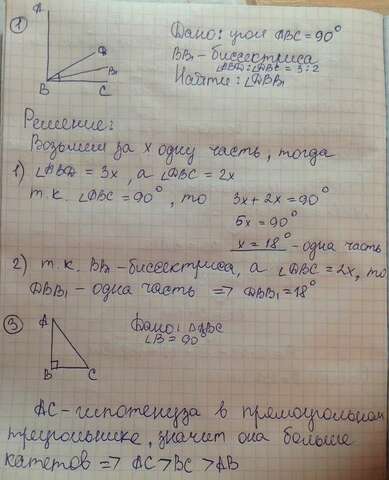 1
A
D
B₁
B
C
Дано: угол ABC = 90°
BB₁ - биссектриса
∠ABD : ∠DBC = 3 : 2
Найти: ∠DBB₁
Решение:
Возьмем за x одну часть, тогда
1) ∠ABD = 3x, а ∠DBC = 2x
т.к. ∠ABC = 90°, то 3x + 2x = 90°
5x = 90°
x = 18° - одна часть
2) т.к. BB₁ - биссектриса, а ∠DBC = 2x, то
DBB₁ - одна часть => DBB₁ = 18°
3
A
B
C
Дано: △ABC
∠B = 90°
AC - гипотенуза в прямоугольном
треугольнике, значит она больше
катетов => AC > BC > AB